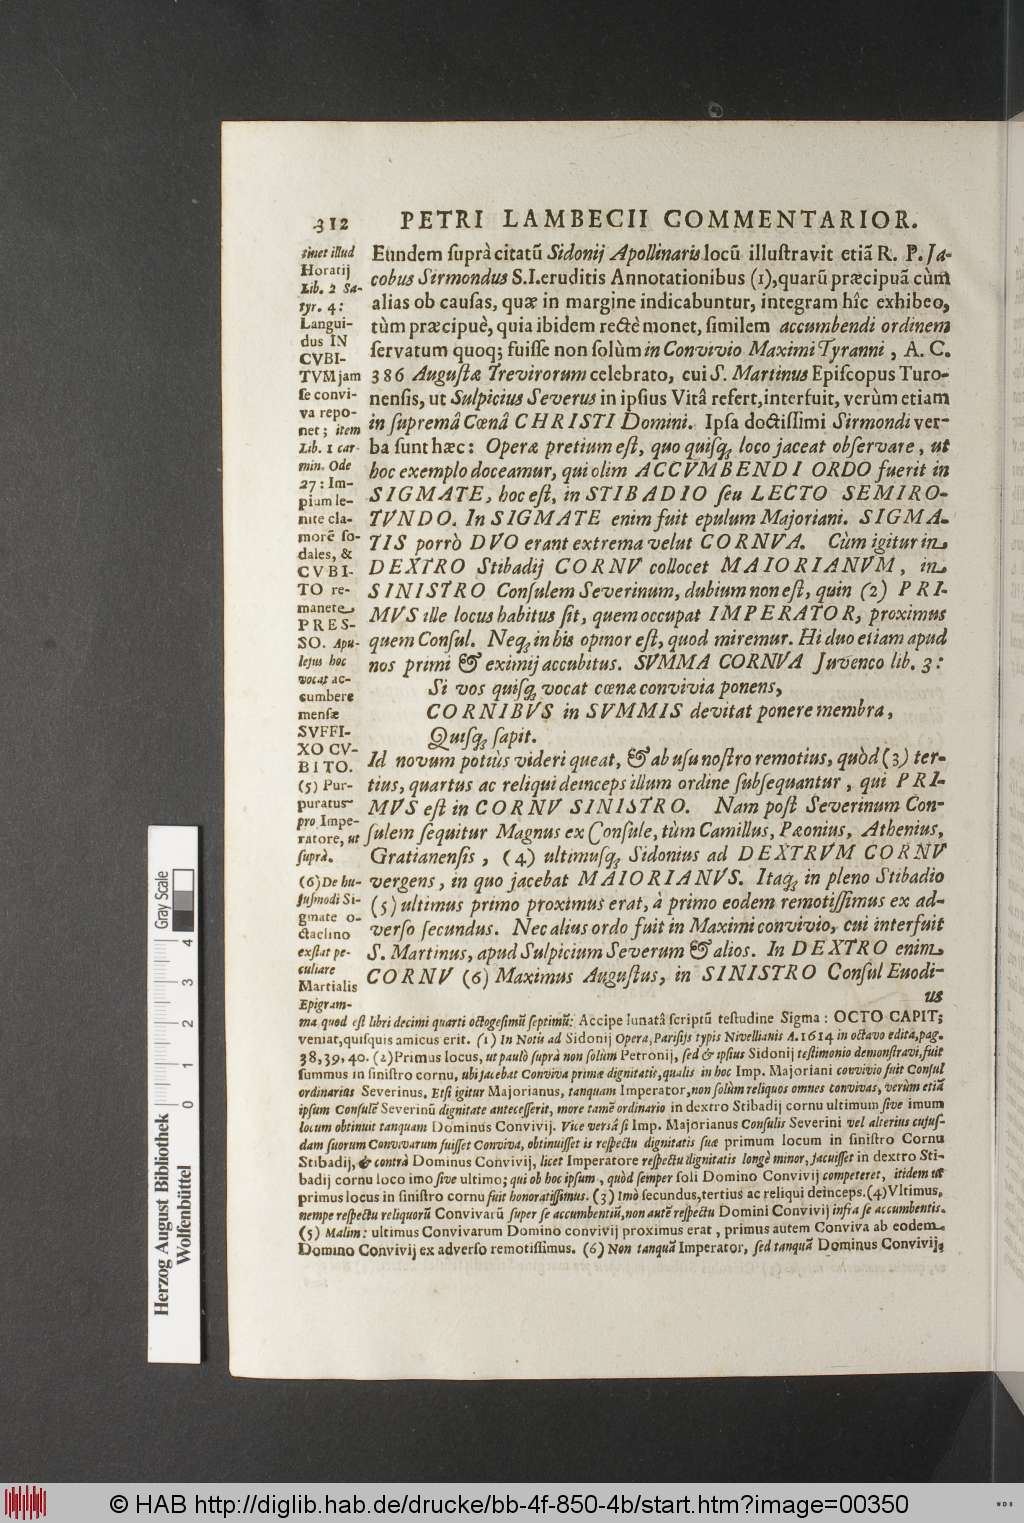 312 PETRI LAMBECII COMMENTARIOR.
Eundem ſuprà citatū Sidonij Apollinaris locū illuſtravit etiā R. P. Ja-
cobus Sirmondus S.I. eruditis Annotationibus (1), quarū præcipuā cùm
alias ob cauſas, quæ in margine indicabuntur, integram hîc exhibeo,
tùm præcipuè, quia ibidem rectè monet, ſimilem accumbendi ordinem
ſervatum quoq; fuiſſe non ſolùm in Convivio Maximi Tyranni, A. C.
386 Auguſtæ Trevirorum celebrato, cui S. Martinus Epiſcopus Turo-
nenſis, ut Sulpicius Severus in ipſius Vitâ refert, interfuit, verùm etiam
in ſupremâ Cœnâ CHRISTI Domini. Ipſa doctiſſimi Sirmondi ver-
ba ſunt hæc: Operæ pretium eſt, quo quiſq; loco jaceat obſervare, ut
hoc exemplo doceamur, qui olim ACCVMBENDI ORDO fuerit in
SIGMATE, hoc eſt, in STIBADIO ſeu LECTO SEMIRO-
TVNDO. In SIGMATE enim fuit epulum Majoriani. SIGMA-
TIS porrò DVO erant extrema velut CORNVA. Cùm igitur in
DEXTRO Stibadij CORNV collocet MAIORIANVM, in
SINISTRO Conſulem Severinum, dubium non eſt, quin (2) PRI-
MVS ille locus habitus ſit, quem occupat IMPERATOR, proximus
quem Conſul. Neq; in his opinor eſt, quod miremur. Hi duo etiam apud
nos primi & eximij accubitus. SVMMA CORNVA Juvenco lib. 3:
Si vos quiſq; vocat cœnæ convivia ponens,
CORNIBVS in SVMMIS devitat ponere membra,
Quiſq; ſapit.
Id novum potiùs videri queat, & ab uſu noſtro remotius, quòd (3) ter-
tius, quartus ac reliqui deinceps illum ordine ſubſequantur, qui PRI-
MVS eſt in CORNV SINISTRO. Nam poſt Severinum Con-
ſulem ſequitur Magnus ex Conſule, tùm Camillus, Pæonius, Athenius,
Gratianenſis, (4) ultimuſq; Sidonius ad DEXTRVM CORNV
vergens, in quo jacebat MAIORIANVS. Itaq; in pleno Stibadio
(5) ultimus primo proximus erat, à primo eodem remotiſſimus ex ad-
verſo ſecundus. Nec alius ordo fuit in Maximi convivio, cui interfuit
S. Martinus, apud Sulpicium Severum & alios. In DEXTRO enim
CORNV (6) Maximus Auguſtus, in SINISTRO Conſul Euodi-
us
tinet illud
Horatij
Lib. 2 Sa-
tyr. 4:
Langui-
dus IN
CVBI-
TVM jam
ſe convi-
va repo-
net; item
Lib. 1 car-
min. Ode
27: Im-
pium le-
nite cla-
morē ſo-
dales, &
CVBI-
TO re-
manete
PRES-
SO. Apu-
lejus hoc
vocat ac-
cumbere
menſæ
SVFFI-
XO CV-
BITO.
(5) Pur-
puratus
pro Impe-
ratore, ut
ſuprà.
(6) De hu-
juſmodi Si-
gmate o-
ctaclino
exſtat pe-
culiare
Martialis
Epigram-
ma, quod eſt libri decimi quarti octogeſimū ſeptimū: Accipe lunatâ ſcriptū teſtudine Sigma: OCTO CAPIT;
veniat, quiſquis amicus erit. (1) In Notis ad Sidonij Opera, Pariſijs typis Nivellianis A. 1614 in octavo edita, pag.
38, 39, 40. (2) Primus locus, ut paulò ſuprà non ſolùm Petronij, ſed & ipſius Sidonij teſtimonio demonſtravi, fuit
ſummus in ſiniſtro cornu, ubi jacebat Conviva primæ dignitatis, qualis in hoc Imp. Majoriani convivio fuit Conſul
ordinarius Severinus. Etſi igitur Majorianus, tanquam Imperator, non ſolùm reliquos omnes convivas, verùm etiā
ipſum Conſulē Severinū dignitate anteceſſerit, more tamē ordinario in dextro Stibadij cornu ultimum ſive imum
locum obtinuit tanquam Dominus Convivij. Vice versâ ſi Imp. Majorianus Conſulis Severini vel alterius cujuſ-
dam ſuorum Convivarum fuiſſet Conviva, obtinuiſſet is reſpectu dignitatis ſuæ primum locum in ſiniſtro Cornu
Stibadij, & contrà Dominus Convivij, licet Imperatore reſpectu dignitatis longè minor, jacuiſſet in dextro Sti-
badij cornu loco imo ſive ultimo; qui ob hoc ipſum, quòd ſemper ſoli Domino Convivij competeret, itidem ut
primus locus in ſiniſtro cornu fuit honoratiſſimus. (3) Imò ſecundus, tertius ac reliqui deinceps. (4) Vltimus,
nempe reſpectu reliquorū Convivarū ſuper ſe accumbentiū, non autē reſpectu Domini Convivij infra ſe accumbentis.
(5) Malim: ultimus Convivarum Domino convivij proximus erat, primus autem Conviva ab eodem
Domino Convivij ex adverſo remotiſſimus. (6) Non tanquā Imperator, ſed tanquā Dominus Convivij,
Herzog August Bibliothek
Wolfenbüttel
0 1 2 3 4
Gray Scale
© HAB http://diglib.hab.de/drucke/bb-4f-850-4b/start.htm?image=00350